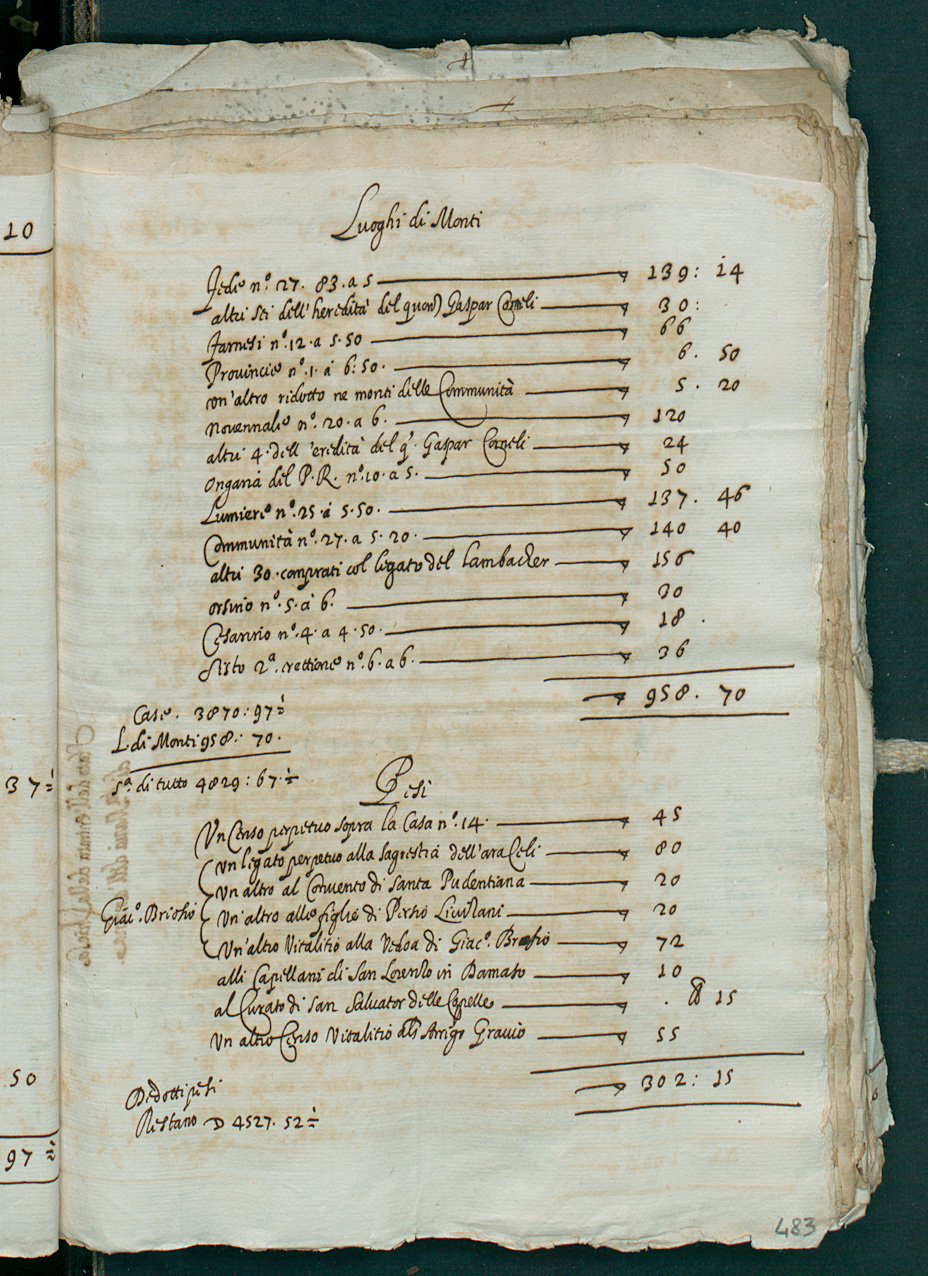 10
37 ½
50
97 ½
Luoghi di Monti
Fede n.º 27. 83. a 5 139: 14
altri sei dell'heredità del quon) Gaspar Corneli 30:
Farnesi n.º 12. a 5. 50 66
Provincie n.º 1. à 6: 50. 6. 50
un'altro ridotto ne monti delle Communità 5. 20
novennale n.º 20. a 6. 120
altri 4. dell'eredità del q. Gaspar Corneli 24
ongaria del P. R. n.º 10. a 5. 50
Lumiere n.º 25. à 5. 50. 137. 46
Communità n.º 27. a 5. 20. 140 40
altri 30. comprati col legato del Lambacher 156
orsino n.º 5. à 6. 30
Cesarino n.º 4. a 4. 50. 18.
Sisto 2ª. erettione n.º 6. a 6. 36
958. 70
Case. 3870: 97 ½
L. di Monti 958: 70.
S.ª di tutto 4829: 67. ½
Pesi
Un Censo perpetuo sopra la Casa n.º 14. 45
Giac.º Briosio
Un legato perpetuo alla sagrestia dell'ara Celi 80
Un altro al Convento di Santa Pudentiana 20
Un'altro alle figlie di Pietro 20
Un'altro Vitalitio alla Vedoa di Giac.º 72
alli Capellani di San Lorenzo in Damaso 10
al Curato di San Salvator delle Capelle . 15
Un altro Censo Vitalitio Arrigo 55
302: 15
Dedotti pesi
Restano D 4527. 52 ½
483